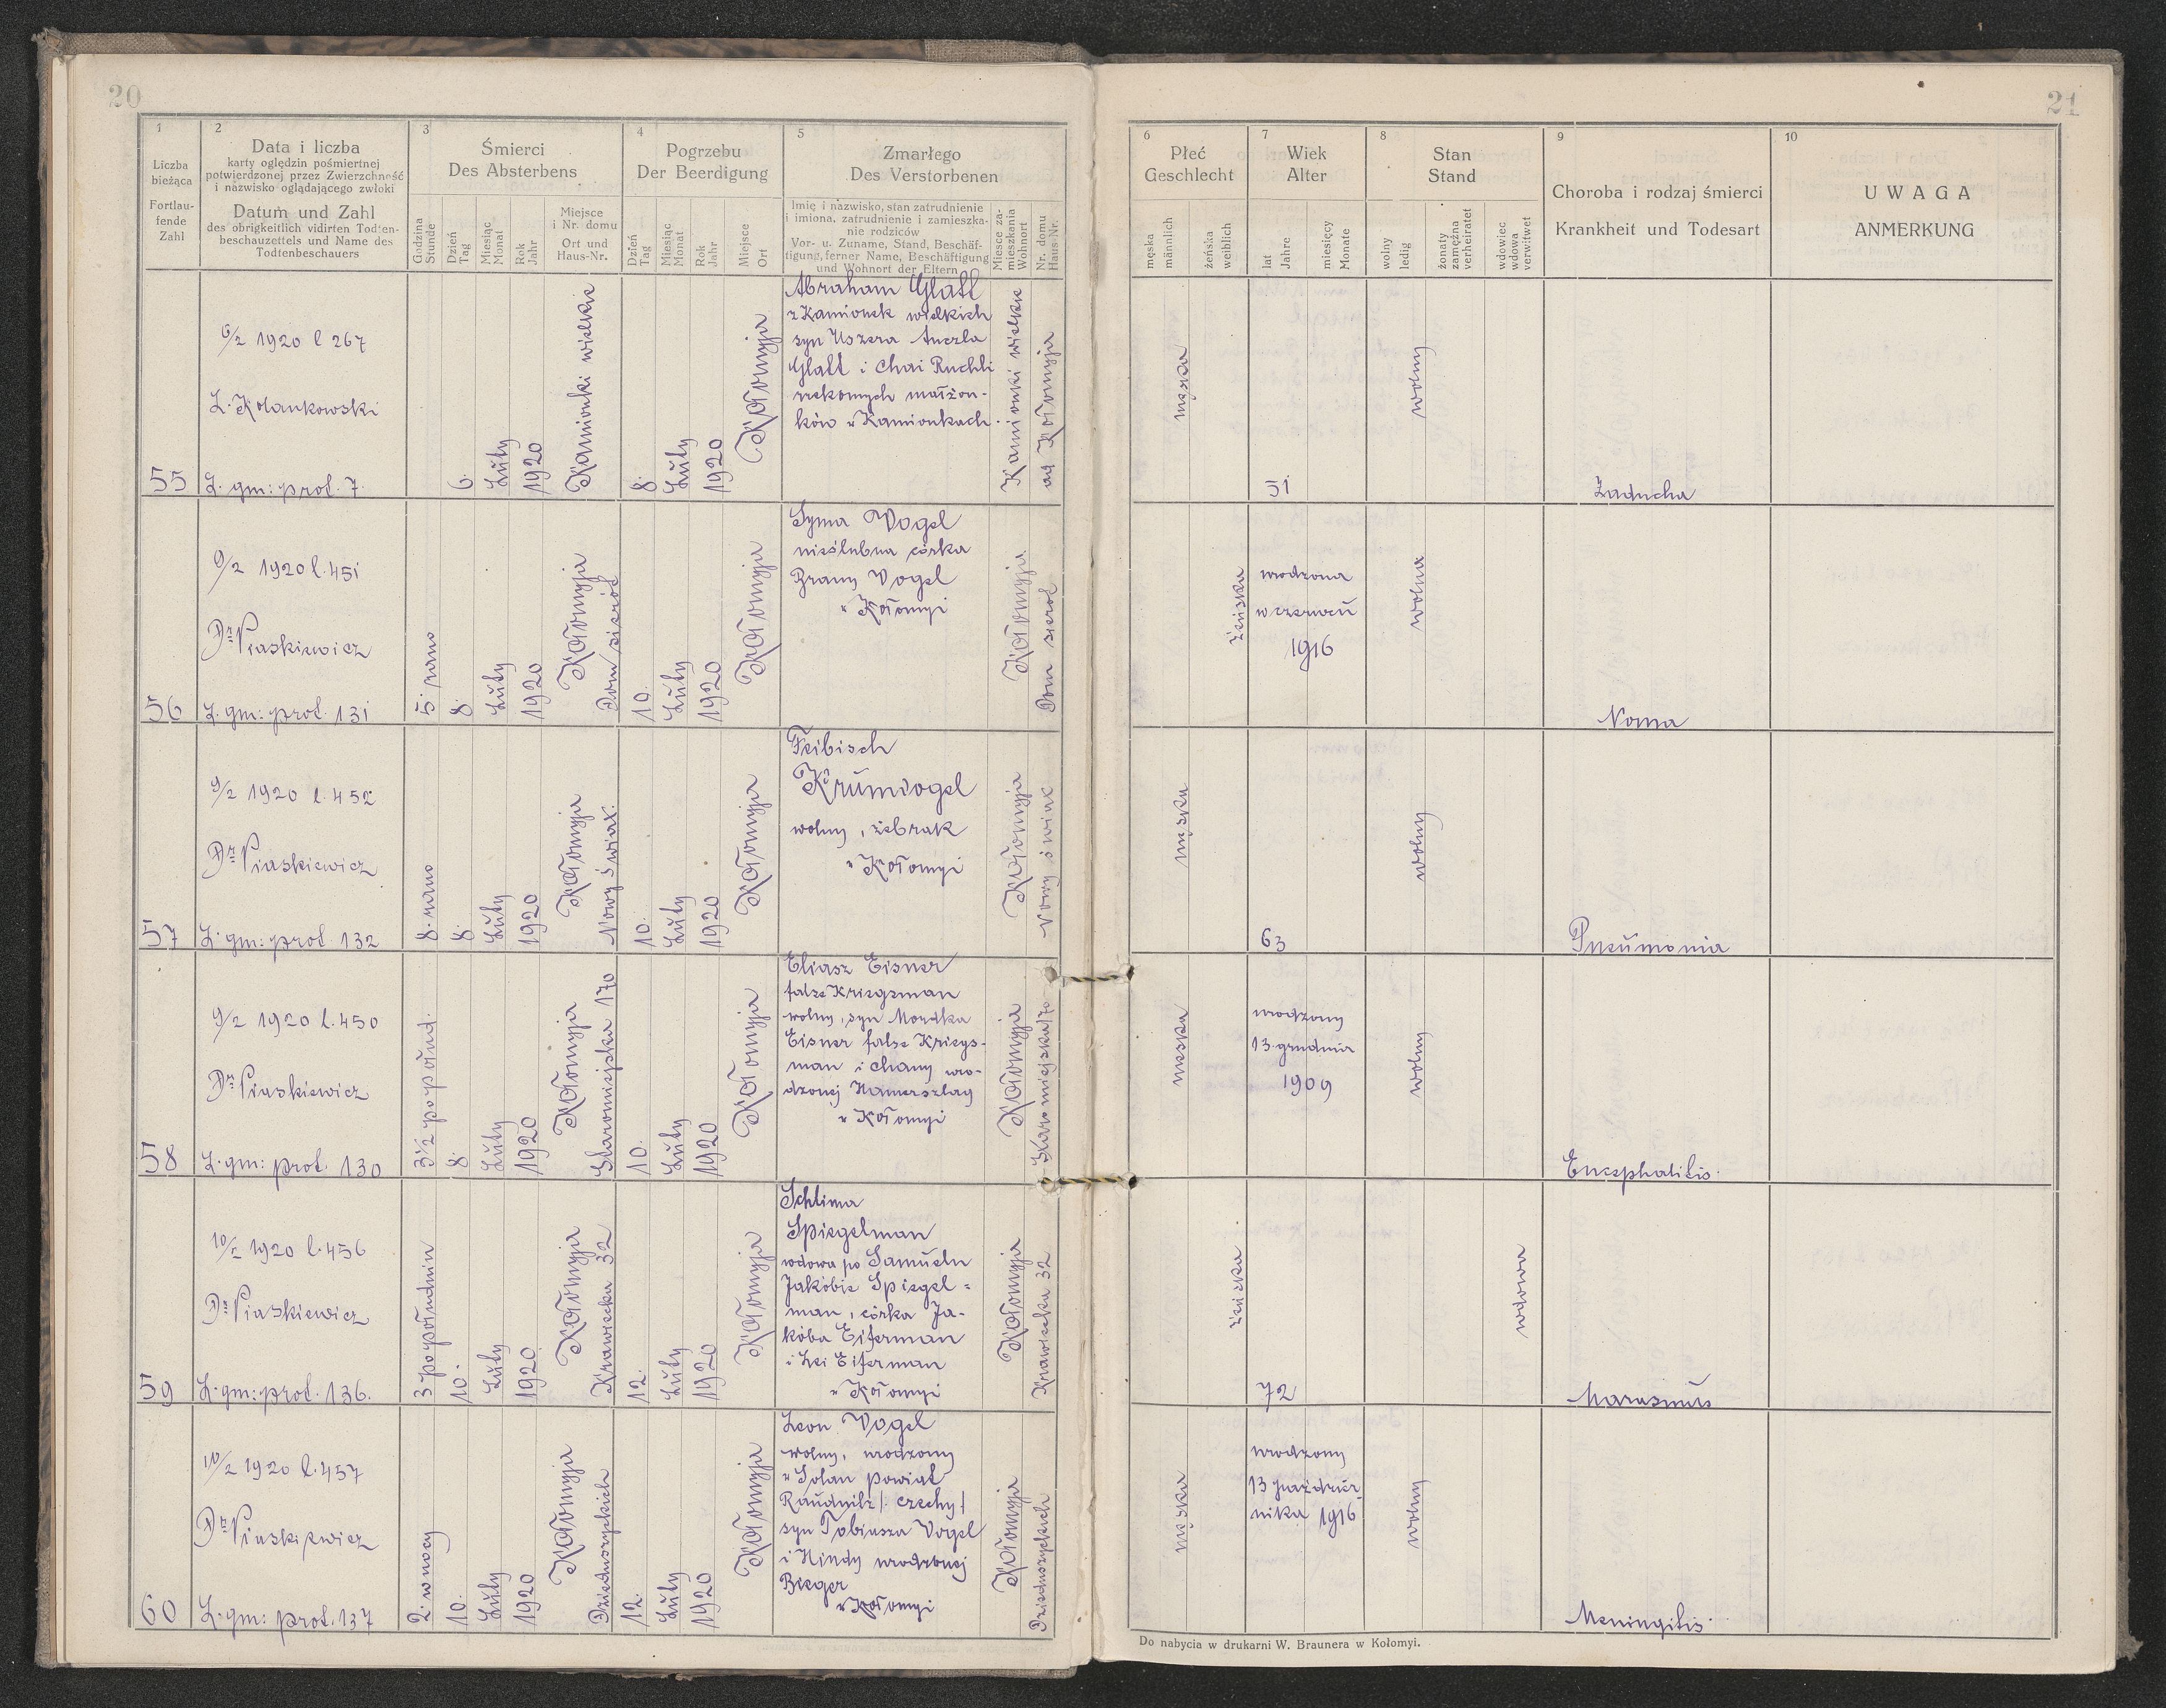 20
1
Liczba
bieżąca
Fortlau-
fende
Zahl
2
Data i liczba
karty oględzin pośmiertnej
potwierdzonej przez Zwierzchność
i nazwisko oglądającego zwłoki
Datum und Zahl
des obrigkeitlich vidirten Todten-
beschauzettels und Name des
Todtenbeschauers
3
Śmierci
Des Absterbens
Godzina
Stunde
Dzień
Tag
Miesiąc
Monat
Rok
Jahr
Miejsce
i Nr. domu
Ort und
Haus-Nr.
4
Pogrzebu
Der Beerdigung
Dzień
Tag
Miesiąc
Monat
Rok
Jahr
Miejsce
Ort
5
Zmarłego
Des Verstorbenen
Imię i nazwisko, stan zatrudnienie
i imiona, zatrudnienie i zamieszka-
nie rodziców
Vor- u. Zuname, Stand, Beschäf-
tigung, ferner Name, Beschäftigung
und Wohnort der Eltern
Miesce za-
mieszkania
Wohnort
Nr. domu
Haus-Nr.
55
6/2 1920 l 267
L. Kolankowski
L. gm: prot. 7.
6.
Luty
1920
Kamionki wielkie
8.
Luty
1920
Kołomyja
Abraham Glatt
z Kamionek wielkich
syn Uszera Anczla
Glatt i Chai Ruchli
rzekomych małżon-
ków w Kamionkach.
Kamionki wielkie
ad Kołomyja
56
9/2 1920 l. 451
Dr Piaskiewicz
L. gm: prot. 131
5 rano
8.
Luty
1920
Kołomyja
Dom sierót
10.
Luty
1920
Kołomyja
Syma Vogel
nieślubna córka
Brany Vogel
w Kołomyi
Kołomyja
Dom sierot
57
9/2 1920 l. 452
Dr Piaskiewicz
L. gm: prot 132
8. rano
8.
Luty
1920
Kołomyja
Nowy świat.
10.
Luty
1920
Kołomyja
Feibisch
Krumvogel
wolny, żebrak
w Kołomyi
Kołomyja
Nowy świat
58
9/2 1920 l. 450
Dr Piaskiewicz
L. gm: prot. 130
3 1/2 popołud.
8.
Luty
1920
Kołomyja
Staromiejska 170
10.
Luty
1920
Kołomyja
Eliasz Eisner
false Kriegsman
wolny, syn Mordka
Eisner false Kriegs-
man i Chany uro-
dzonej Hamerszlag
w Kołomyi
Kołomyja
Staromiejska 170
59
10/2 1920 l. 456
Dr Piaskiewicz
L. gm: prot. 136.
3 popołudniu
10.
Luty
1920.
Kołomyja
Krawiecka 32
12.
Luty
1920
Kołomyja
Schlima
Spiegelman
wdowa po Samuelu
Jakóbie Spiegel=
man, córka Ja-
kóba Eiferman
i Lei Eiferman
w Kołomyi
Kołomyja
Krawiecka 32
60
10/2 1920 l. 457
Dr Piaskiewicz
L. gm: prot. 137
2. w nocy
10.
Luty
1920
Kołomyja
Dzieduszyckich
12.
Luty
1920
Kołomyja
Leon Vogel
wolny, urodzony
w Solan powiat
Raudnitz /. czechy/
syn Tobiasza Vogel
i Hindy urodzonej
Berger
w Kołomyi
Kołomyja
Dzieduszyckich
21
6
Płeć
Geschlecht
męska
männlich
żeńska
weiblich
7
Wiek
Alter
lat
Jahre
miesięcy
Monate
8
Stan
Stand
wolny
ledig
żonaty
zamężna
verheiratet
wdowiec
wdowa
verwitwet
9
Choroba i rodzaj śmierci
Krankheit und Todesart
10
UWAGA
ANMERKUNG
męska
51
wolny
Zaducha
żeńska
urodzona
w czerwcu
1916
wolna
Noma
męska
63
wolny
Pneumonia
męska
urodzony
13. grudnia
1909
wolny
Encephalitis.
żeńska
72
wdowa
Marasmus
męska
urodzony
13 paździer-
nika 1916
wolny
Meningitis.
Do nabycia w drukarni W. Braunera w Kołomyi.